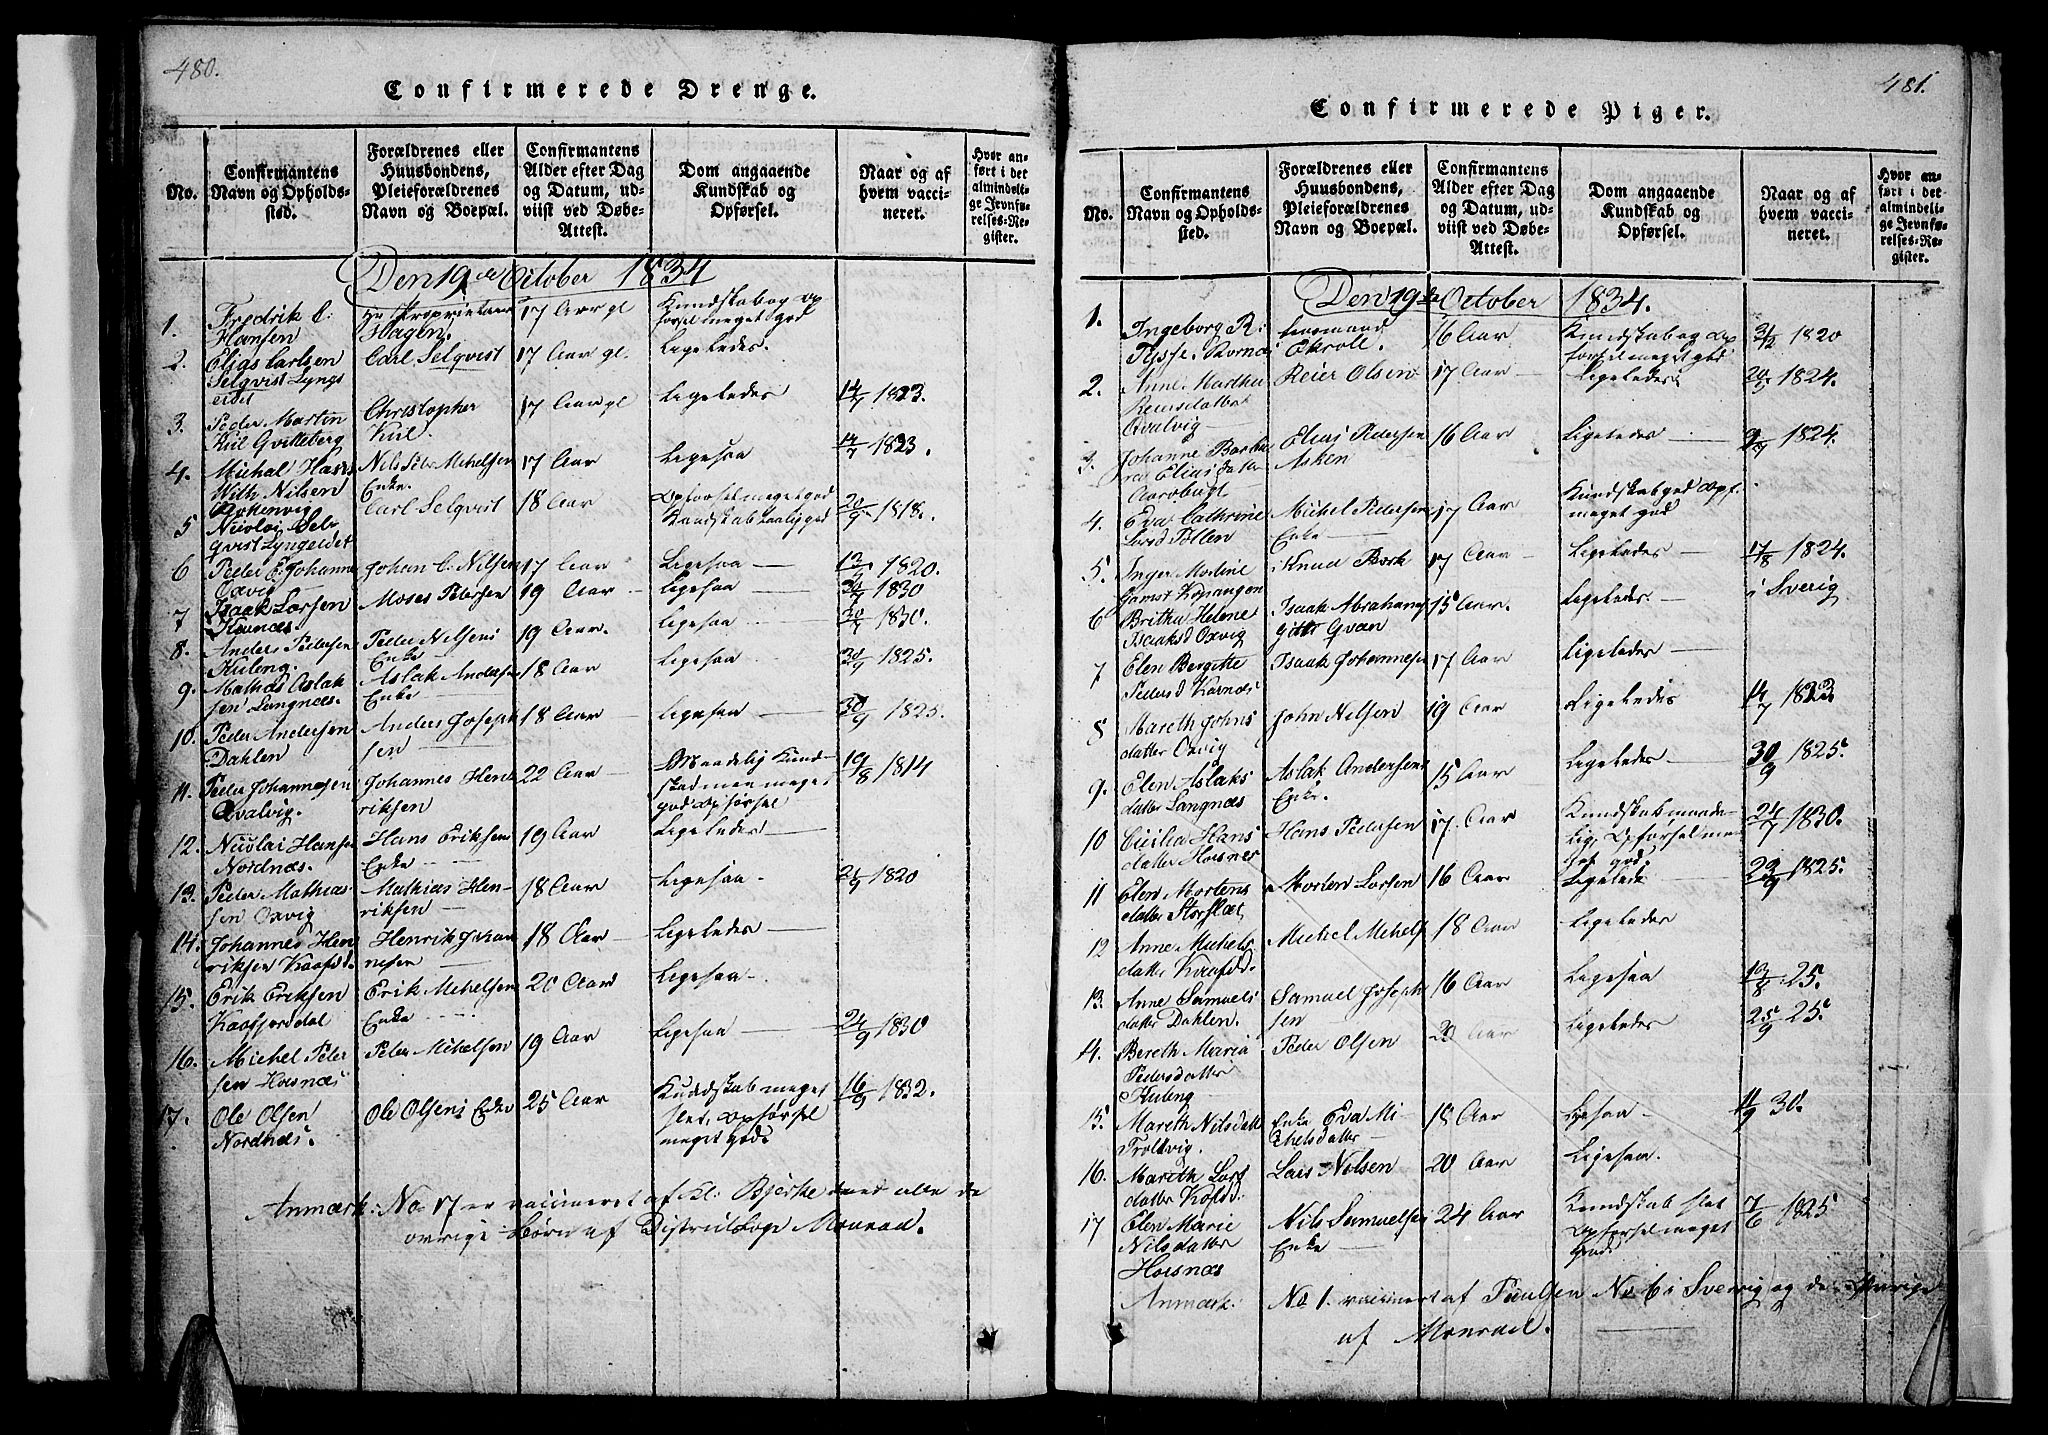 480.
Confirmerede Drenge.
No.
Confirmantens
Navn og Opholds-
sted.
Forældrenes eller
Huusbondens,
Pleieforældrenes
Navn og Boepæl.
Confirmantens
Alder efter Dag
og Datum, ud-
viist ved Døbe-
Attest.
Dom angaaende
Kundskab og
Opførsel.
Naar og af
hvem vacci-
neret.
Hvor an-
ført i det
almindeli-
ge Jevnfø-
relses-Re-
gister.
Den 19de October 1834
1. Fredrik C: Hansen Hr Proprietær Hagen. 17 Aar gl Kundskab og Opførsel meget god
2. Elias Carlsen Selqvist Lyngseidet Carl Selqvist 17 Aar gl. Ligeledes.
3. Peder Martin Kiil Gvitteberg Christopher Kiil. 17 Aar gl Ligeledes 14/7 1823.
4. Michal Hans With Nilsen Nils Peter Mehelsen Enke. 17 Aar Ligesaa 14/7 1823.
5 Nicolai Selqvist Lyngeidet Carl Selqvist 18 Aar Opførsel meget god Kundskab taalig god 20/9 1818.
6 Peder C: Johanne Oxvig Johan C: Nilsen 17 Aar Ligesaa 1820.
7 Isaak Larsen Moses Pedersen 19 Aar Ligesaa 1830
8. Anders Pedersen Kuleng. Peder Nilsens Enke 19 Aar. Ligesaa 1830.
9. Mathias Aslaksen Langnæs. Aslak Andersen Enke 18 Aar Ligesaa 30/9 1825.
10. Peder Andersen Dahlen Anders Josephsen 18 Aar Ligesaa 30/9 1825.
11. Peder Johannesen Qvalvig. Johannes Henriksen 22 Aar Maadelig Kundskab men meget god Opførsel 19/8 1814
12. Nicolai Hansen Nordnæs. Hans Eriksen Enke 19 Aar Ligeledes
13. Peder Mathiassen Oxvig Mathias Henriksen 18 Aar Ligesaa. 1820
14. Johannes Henriksen Kaafd. Henrik Johannesen 18 Aar Ligeledes
15. Erik Eriksen Kaafjorddal Erik Mehelsen Enke 20 Aar Ligesaa
16. Michel Pedersen Horsnæs Peder Mihelsen 19 Aar Ligesaa 24/9 1830
17. Ole Olsen Nordnæs. Ole Olsens Enke 25 Aar Kundskab meget slet, Opførsel meget god. 16/9 1832.
Anmærk: No 17 er vaccineret af Kl: Bjerke med alle de
øvrige Børn af Districtslæge Monrad.
481.
Confirmerede Piger.
No.
Confirmantens
Navn og Opholds-
sted.
Forældrenes eller
Huusbondens,
Pleieforældrenes
Navn og Boepæl.
Confirmantens
Alder efter Dag
og Datum, ud-
viist ved Døbe-
Attest.
Dom angaaende
Kundskab og
Opførsel.
Naar og af
hvem vacci-
neret.
Hvor an-
ført i det
almindeli-
ge Jevnfø-
relses-Re-
gister.
Den 19de October 1834.
1. Ingeborg R: Tysse. Kornæs Lensmand Ekroll. 16 Aar Kundskab og Opførsel meget god 1820
2. Anne Martha Reiersdatter Qvalvig Reier Olsen 17 Aar Ligeledes 1824.
3. Johanne Elias datter Elias Pedersen Asken 16 Aar Ligeledes 1824.
4. Eva Cathrine Tollen Michel Pedersen Enke 17 Aar Kundskab god Opf. meget god
5. Inger Martine Gamst Kopangen Knud Bork 17 Aar Ligeledes 17/8 1824.
6 Britha Helene Isaaksd Oxvig Isaak Abrahams Qvæn 15 Aar. Ligeledes i Sverig
7 Elen Bergitte Pedersd Kavnæs Isaak Johannesen 17 Aar Ligeledes
8 Mareth Johns datter Oxvig John Nilsen 19 Aar Ligeledes 14/7 1823.
9. Elen Aslaks datter Langnæs Aslak Andersens Enke. 15 Aar Ligeledes 30/9 1825.
10 Cicilia Hans datter Horsnes Hans Pedersen 17. Aar Kundskab maadelig, Opførsel meget god. 24/7 1830.
11 Elen Mortens datter Storslæt Morten Larsen 16 Aar Ligelede 29/9 1825.
12 Anne Michels datter Kaafdd. Michel Mehels 18 Aar Ligeledes
13. Anne Samuels datter Dahlen. Samuel Josephsen 16 Aar Ligesaa 25.
14. Bereth Maria Pedersdatter Kuleng Peder Olsen 20 Aar Ligeledes 25/9 25.
15. Mareth Nilsdatt Trollvig. Enke Eva Michelsdatter 18 Aar Ligesaa 11/9 30.
16. Mareth Lars datter Kofdd. Lars Nilsen 20 Aar Ligesaa.
17 Elen Marie Nilsdatter Horsnæs Nils Samuelsen Enke 24 Aar Kundskab slet Opførsel meget god. 7/6 1825
Anmærk. No 1. vaccinert af Poulsen No 6 i Sverrig og de Øvrige
af Monrad.